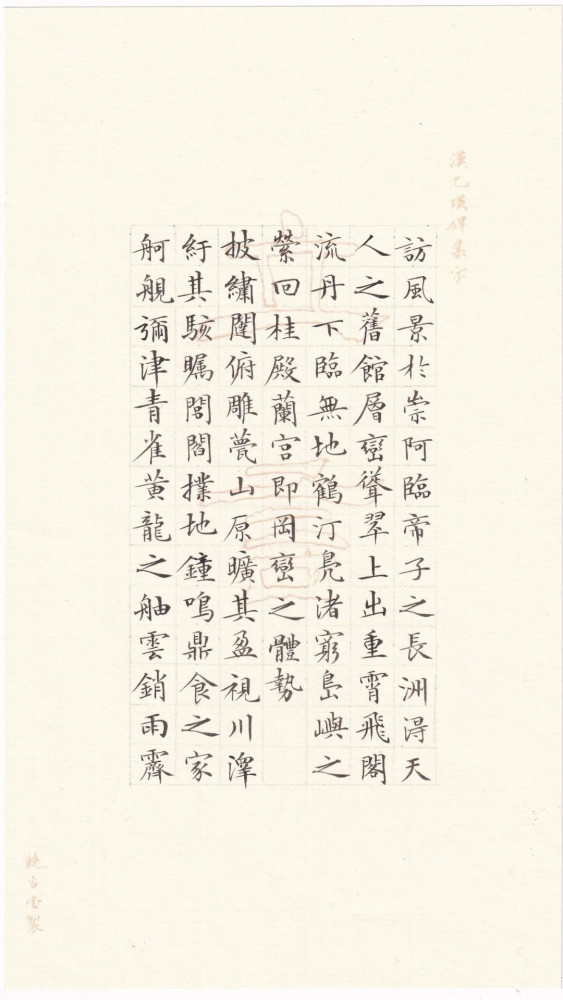 漢乙瑛碑集字
訪風景於崇阿臨帝子之長洲得天
人之舊館層巒聳翠上出重霄飛閣
流丹下臨無地鶴汀鳧渚窮島嶼之
縈回桂殿蘭宮即岡巒之體勢
披繡闥俯雕甍山原曠其盈視川澤
紆其駭矚閭閻撲地鐘鳴鼎食之家
舸艦彌津青雀黃龍之舳雲銷雨霽